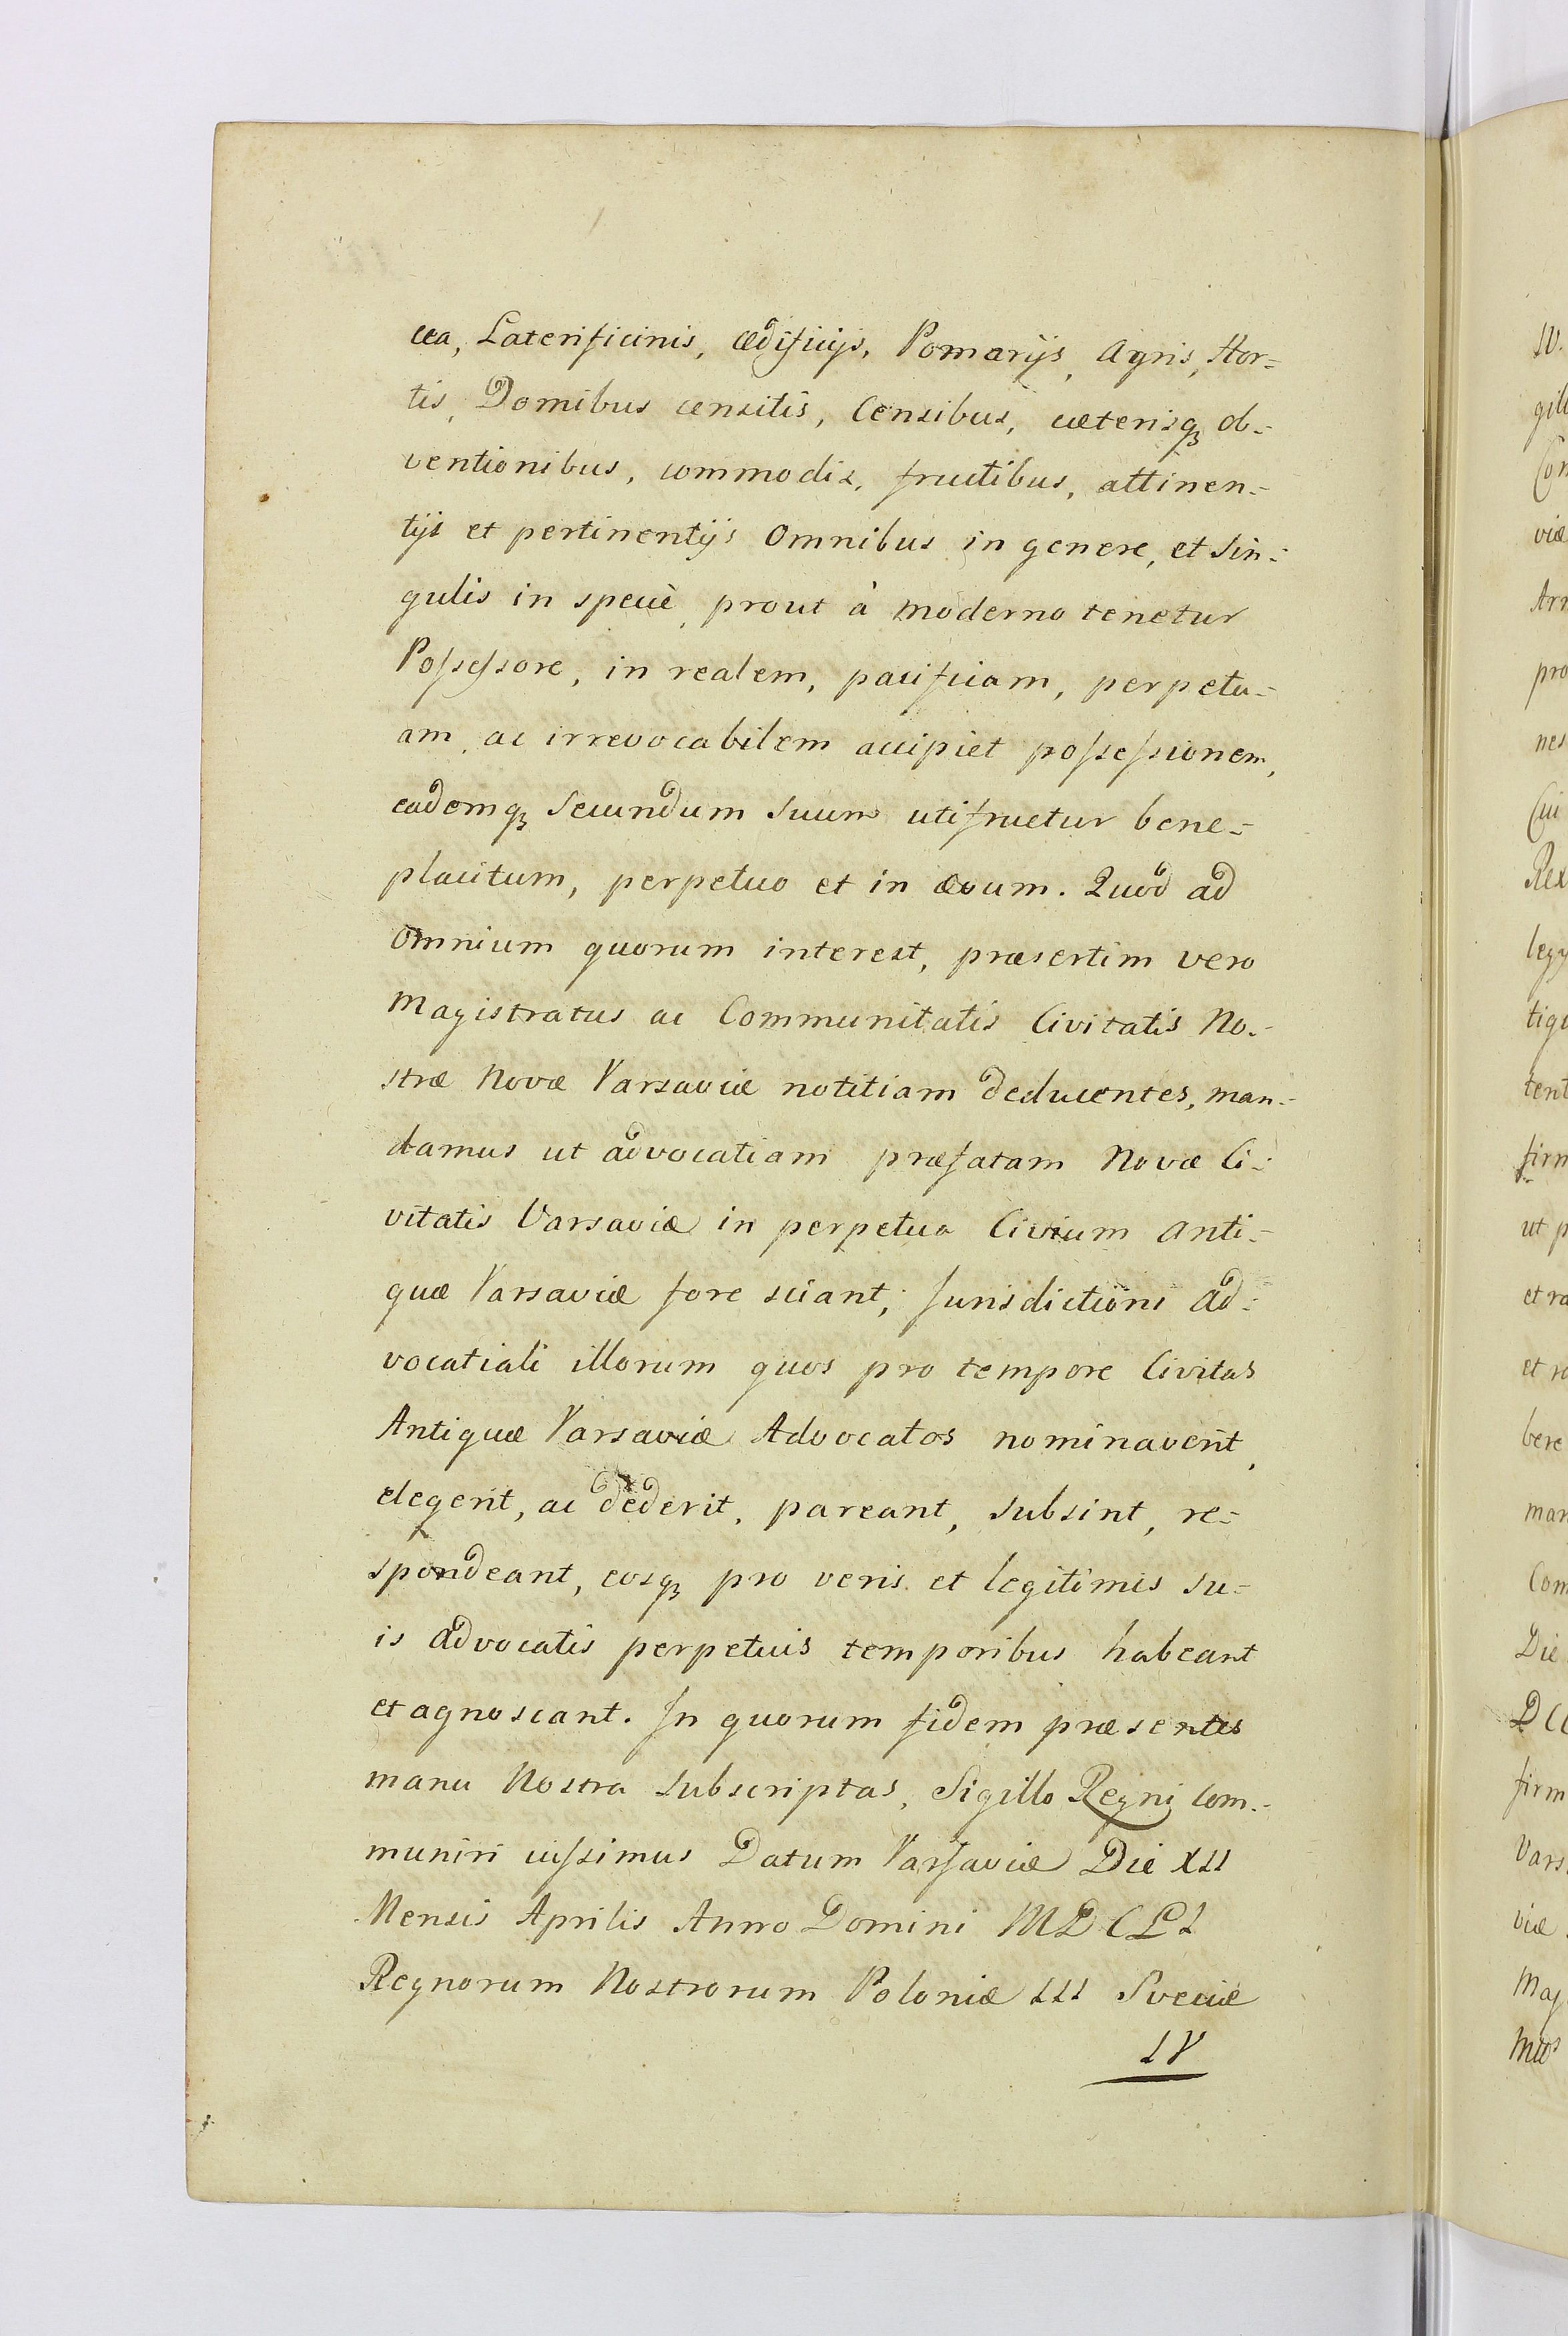 cea, Laterificinis, ædificijs, Pomarijs, Agris, Hor-
tis, Domibus censitis, Censibus, cæterisq₃ ob-
ventionibus, commodis, fructibus, attinen-
tijs et pertinentijs Omnibus in genere, et sin-
gulis in speciè, prout à moderno tenetur
Poſseſsore, in realem, pacificam, perpetu-
am, ac irrevocabilem accipiet poſseſsionem,
eademq₃ secundum suum utifruetur bene-
placitum, perpetuo et in ævum. Quod ad
Omnium quorum interest, præsertim vero
Magistratus ac Communitatis Civitatis No-
stræ Novæ Varsaviæ notitiam deducentes, man-
damus ut advocatiam præfatam Novæ Ci-
vitatis Varsaviæ in perpetua Civium Anti-
quæ Varsaviæ fore sciant, Jurisdictioni Ad-
vocatiali illorum quos pro tempore Civitas
Antiquæ Varsaviæ Advocatos nominaverit,
elegerit, ac dederit, pareant, subsint, re-
spondeant, eosq₃ pro veris et legitimis su-
is Advocatis perpetuis temporibus habeant
et agnoscant. In quorum fidem præsentes
manu Nostra subscriptas, Sigillo Regni com-
muniri iuſsimus Datum Varſaviæ Die XII
Mensis Aprilis Anno Domini MDCLI
Regnorum Nostrorum Poloniæ III Sveciæ
IV